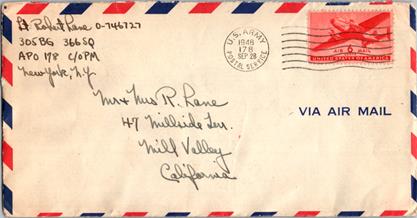 Lt. Robert Lane O-746727
305BG 366SQ
APO 178 C/O PM
New York, N.Y.
U.S. ARMY
1946
178
SEP 28
POSTAL SERVICE
AIR 6¢ MAIL
UNITED STATES OF AMERICA
Mr + Mrs R. Lane
47 Millside Ln.
Mill Valley
California
VIA AIR MAIL